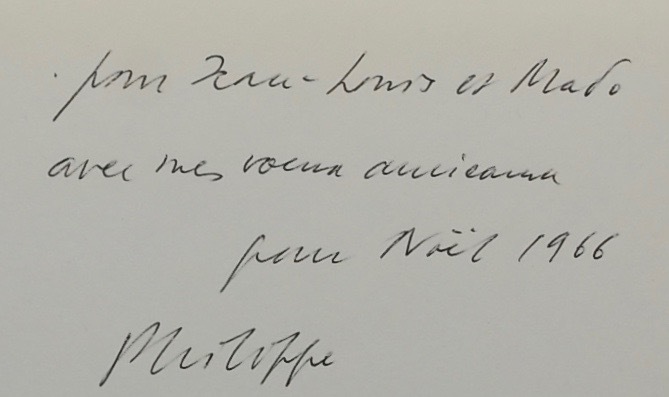 pour Jean-Louis et Mado
avec mes voeux amicaux
pour Noël 1966
Philippe